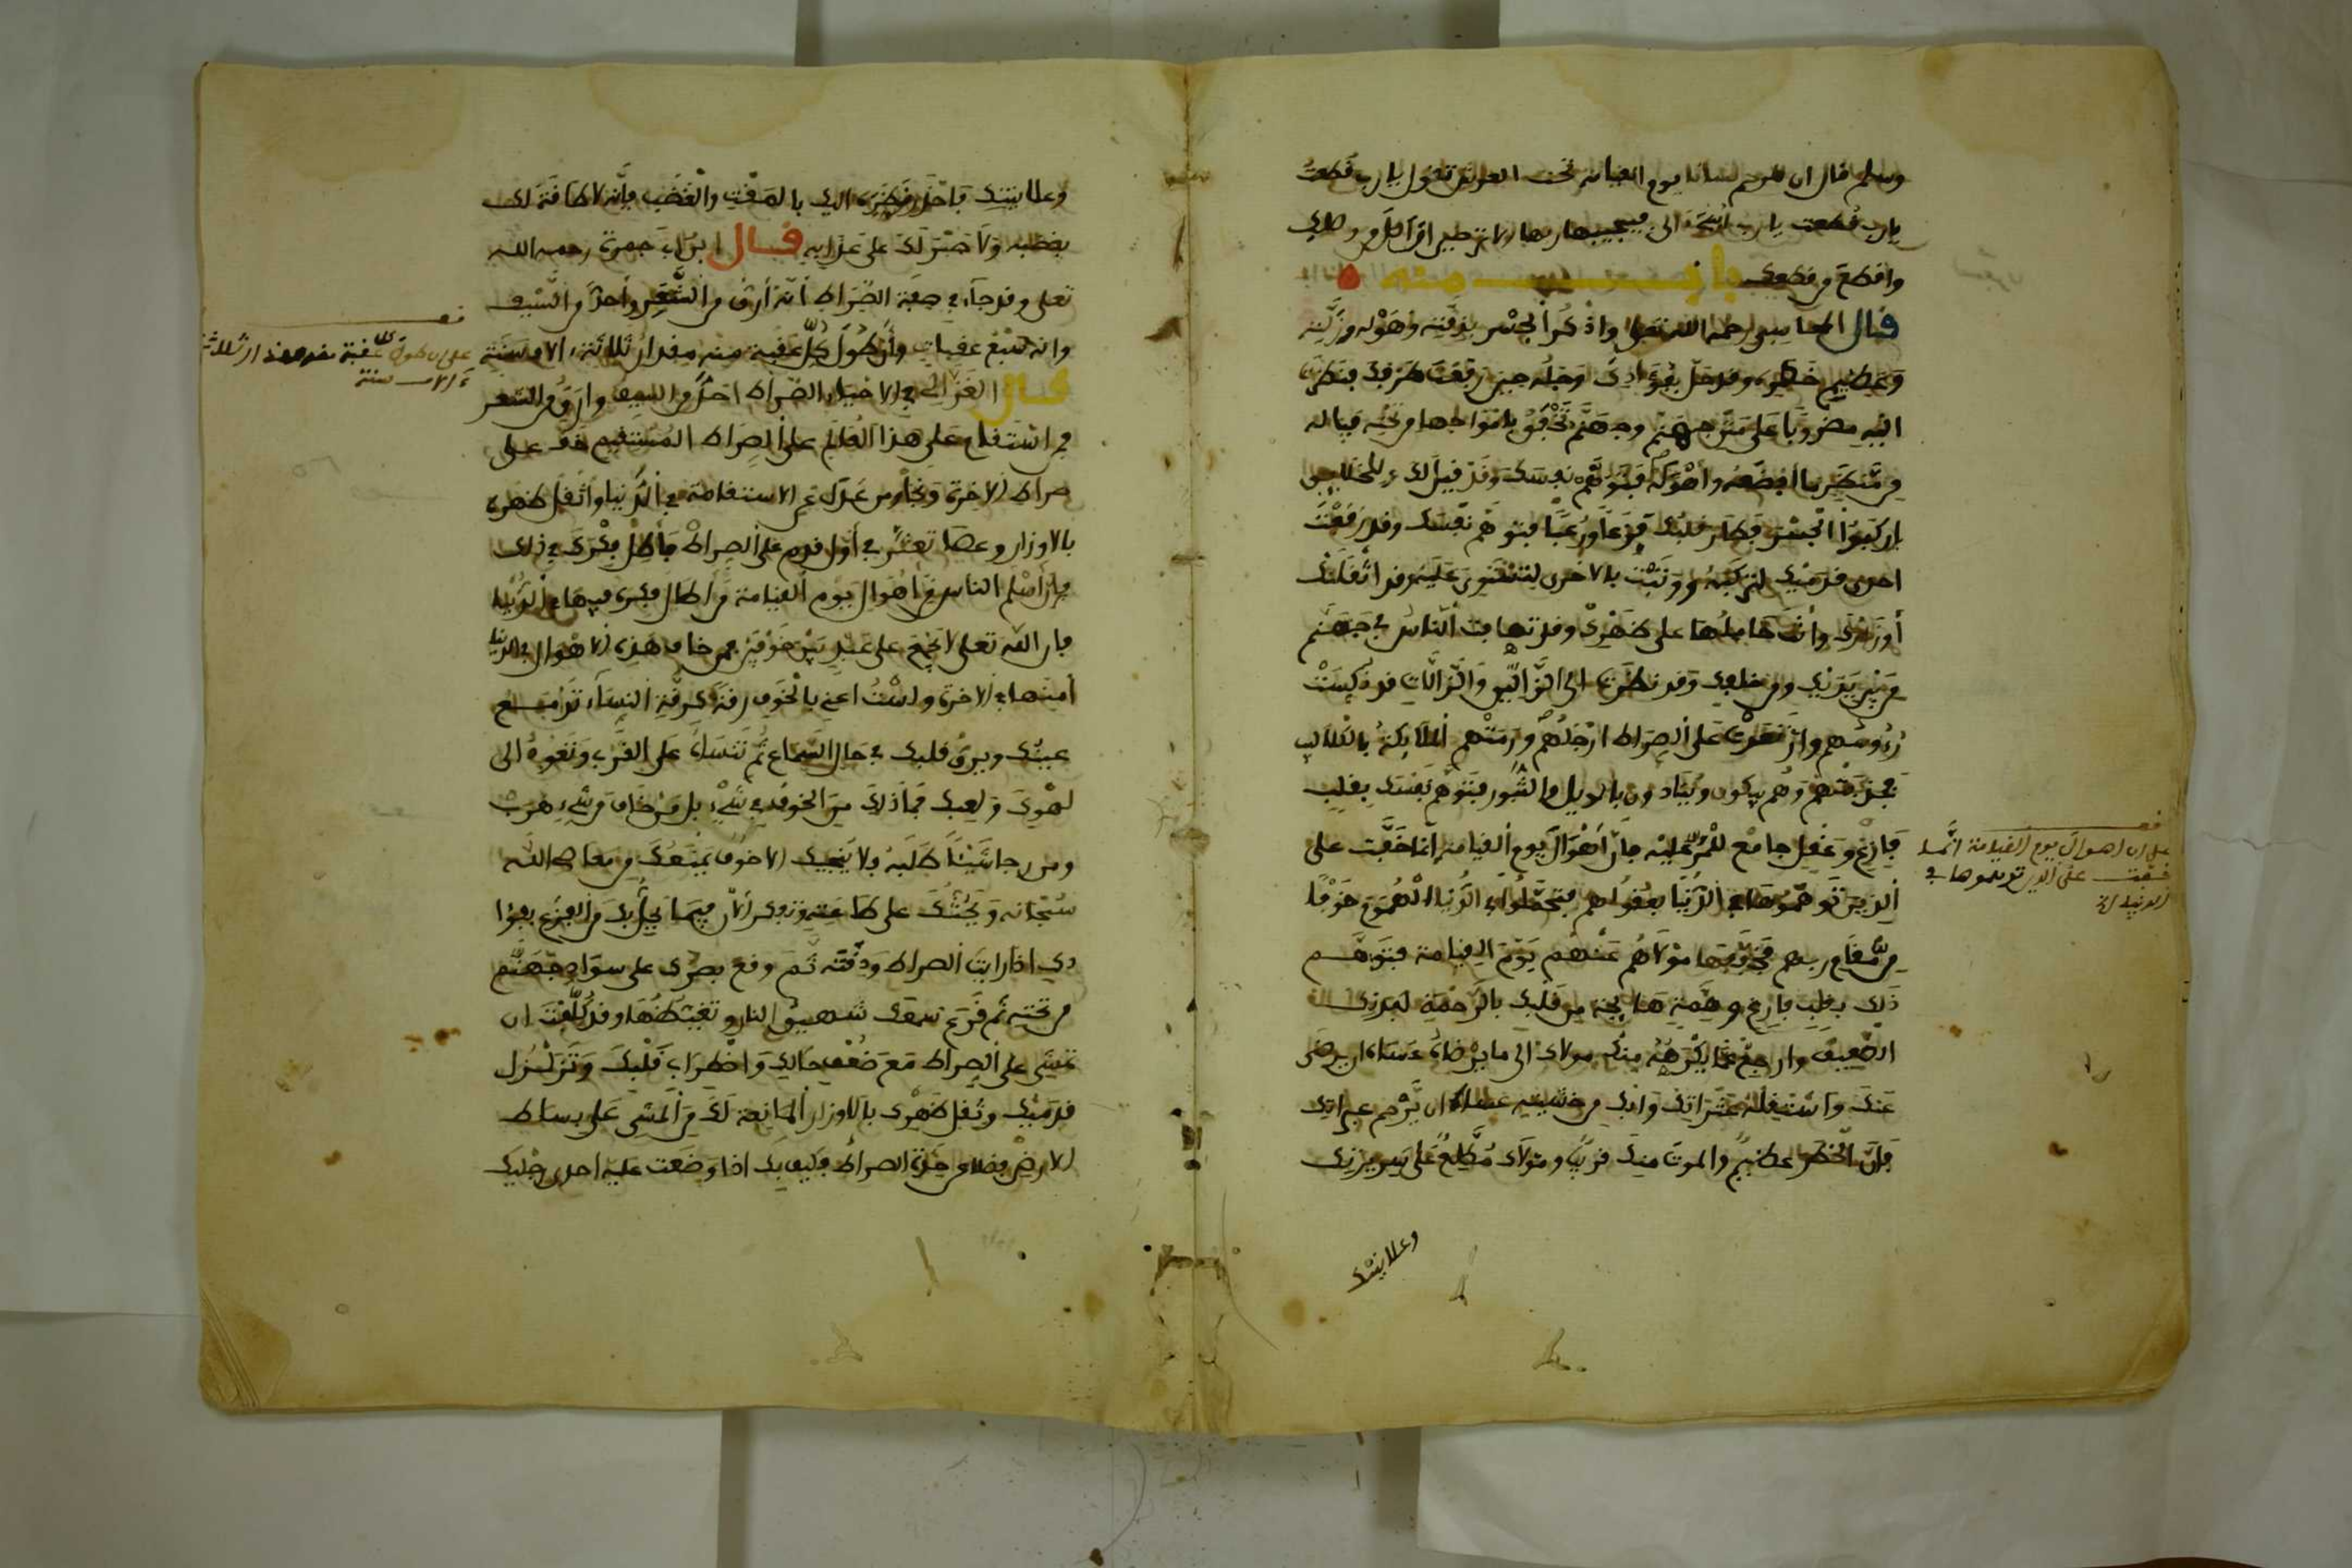 وسلم قال ان للرحم لسانا يوم القيامة تحت العرش تقول يارب قطعت
يارب ظلمت يارب اسئ الى فيجيبها ربها الا ترضين ان اصل من وصلك
واقطع من قطعك باب منه
قال المحاسبي رحمه الله تعالى واذكر الجسر بدقته وهوله وزلته
وعظيم خطره وقد حل بفؤادك وجله حين رفعت طرفك فنظرت
اليه مضروبا على متن جهنم وجهنم تخفق بامواجها من تحته فياله
من منظر ما افظعه واهوله فتوهم نفسك وقد قيل لك وللخلايق
اركبوا الجسر فطار قلبك فزعا ورعبا فتوهم نفسك وقد رفعت
احدى قدميك لتركبه ووثبت بالاخرى لتستوي عليه وقد اثقلتك
أوزارك وانت حاملها على ظهرك وقد تهافت الناس في جهنم
من بين يديك ومن خلفك وقد نظرت الى الزالين والزالات قد نكست
رءوسهم وارتفعت على الصراط ارجلهم ورمتهم الملايكة بالكلاليب
تجذبهم وهم يبكون وينادون بالويل والثبور فتوهم نفسك بقلب
فارغ وعقل جامع للهم عليه فان أهوال يوم القيامة انما خفت على
الذين توهموها في الدنيا بعقولهم فتحملوا في الدنيا الهموم خوفا
من مقام ربهم فخففها مولاهم عنهم يوم القيامة فتوهم
ذلك بقلب فارغ وهمة هايجة من قلبك بالرحمة لبدنك
الضعيف وارجع عما يكرهه منك مولاك الى ما يرضاه عساه ان يرضى
عنك واستقله عثراتك وابك من خشيته عساه ان يرحم عبراتك
فان الخطر عظيم والموت منك قريب ومولاك مطلع على سريرتك
وعلانيتك
قف
على ان اهوال يوم القيامة انما
خففت على الذين توهموها في
الدنيا
وعلانيتك فاحذر نظره اليك بالمقت والغضب فانه لا طاقة لك
بغضبه ولا صبر لك على عذابه قال ابن ابي جمرة رحمه الله
تعلى وقد جاء في صفة الصراط أنه أرق من الشعر وأحد من السيف
وانه سبع عقبات وأن طول كل عقبة منه مقدار ثلاثة الاف سنة
قال الغزالي في الاحياء الصراط احد من السيف وارق من الشعر
فمن استقام على هذا العالم على الصراط المستقيم خف على
صراط الاخرة ونجا ومن عدل عن الاستقامة في الدنيا واثقل ظهره
بالاوزار وعصا تعثر في أول قدم على الصراط فأطل فكرك في ذلك
فان أسلم الناس من أهوال يوم القيامة من أطال فكره فيها في الدنيا
فان الله تعلى لا يجمع على عبد بين خوفين فمن خاف هذه الاهوال في الدنيا
أمنها في الاخرة ولست اعني بالخوف رقة كرقة النساء تدمع
عينك ويرق قلبك في حال السماع ثم تنساه على القرب وتعود الى
لهوك ولعبك فما ذلك من الخوف في شيء بل من خاف من شيء هرب
ومن رجا شيئا طلبه ولا ينجيك الا خوف يمنعك من معاصي الله
سبحانه ويحثك على طاعته وتفكر الآن فيما يحل بك من الفزع بفؤا
دك اذا رايت الصراط ودقته ثم وقع بصرك على سواد جهنم
من تحته ثم قرع سمعك شهيق النار وتغيظها وقد كلفت ان
تمشي على الصراط مع ضعف حالك واضطراب قلبك وتزلزل
قدميك وثقل ظهرك بالاوزار المانعة لك من المشي على بساط
الارض فضلا عن حدة الصراط فكيف بك اذا وضعت عليه احدى رجليك
قف
على ان طول كل عقبة منه مقدار ثلاثة
ءالاف سنة